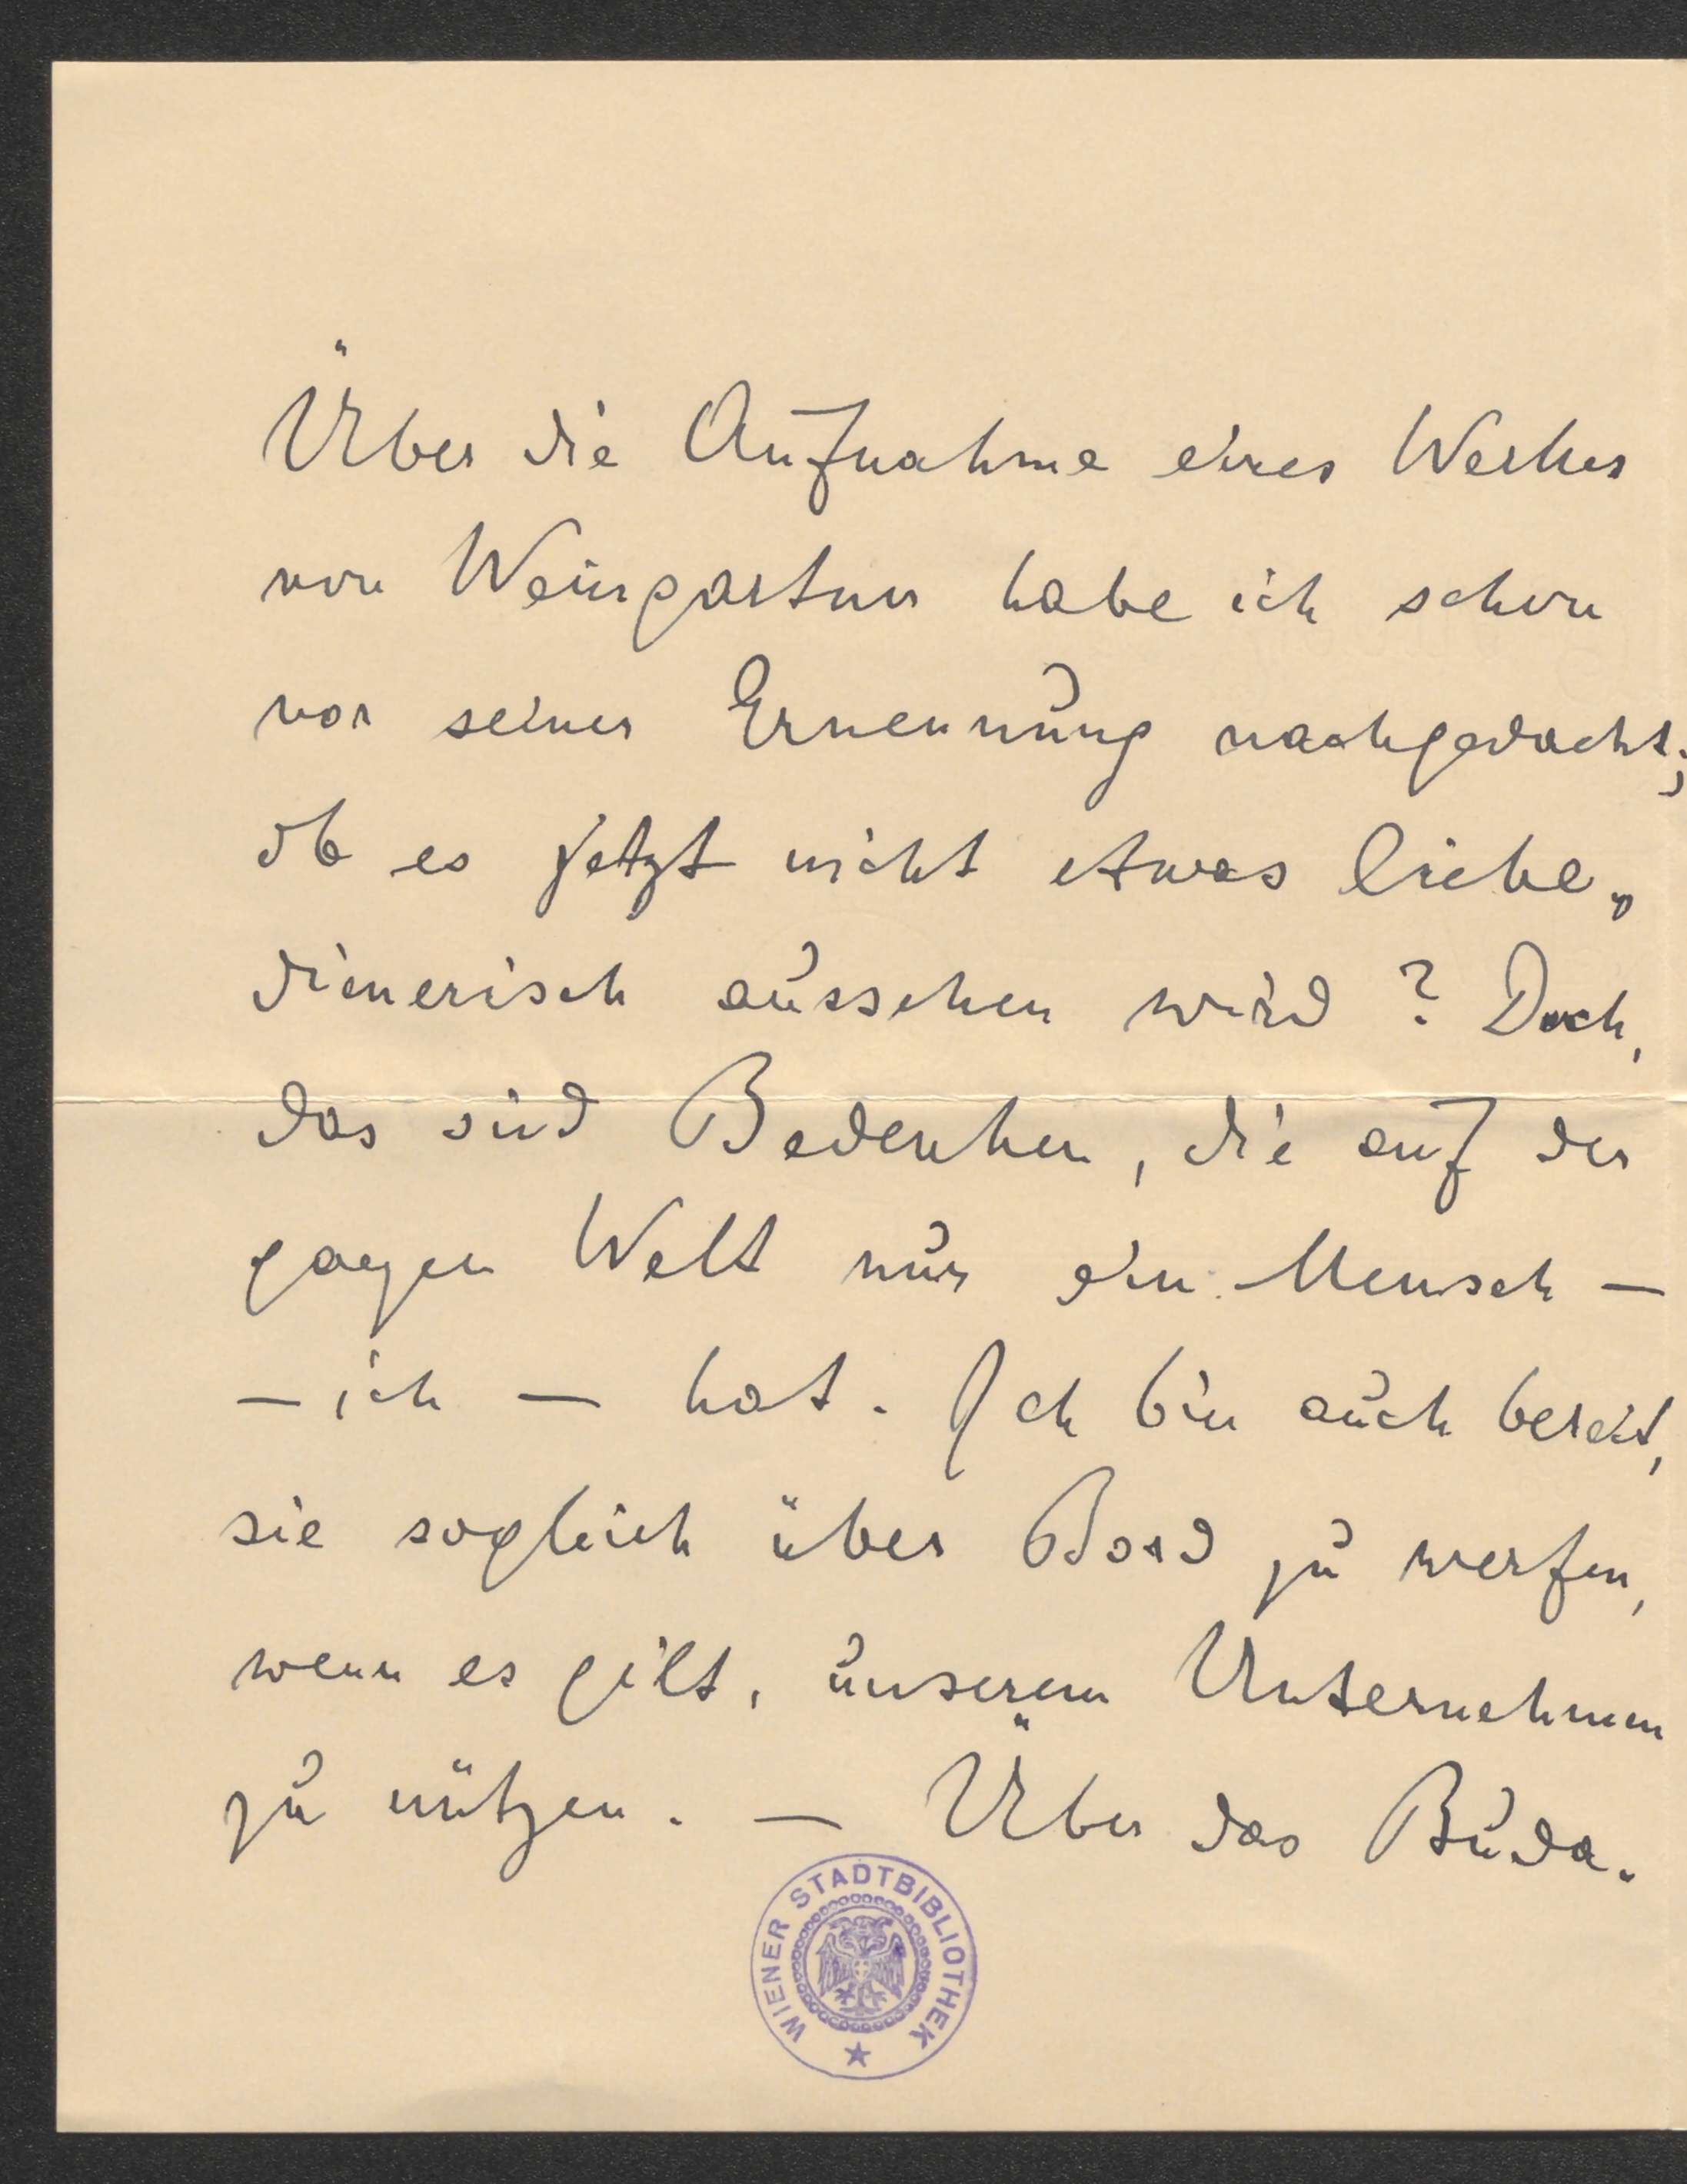 Über die Aufnahme eines Werkes
von Weingartner habe ich schon
vor seiner Ernennung nachgedacht;
ob es jetzt nicht etwas liebe„
dienerisch aussehen wird? Doch,
das sind Bedenken, die auf der
ganzen Welt nur ein Mensch —
— ich — hat. Ich bin auch bereit,
sie sogleich über Bord zu werfen,
wenn es gilt, unserem Unternehmen
zu nützen. — Über das Buda-
WIENER STADTBIBLIOTHEK